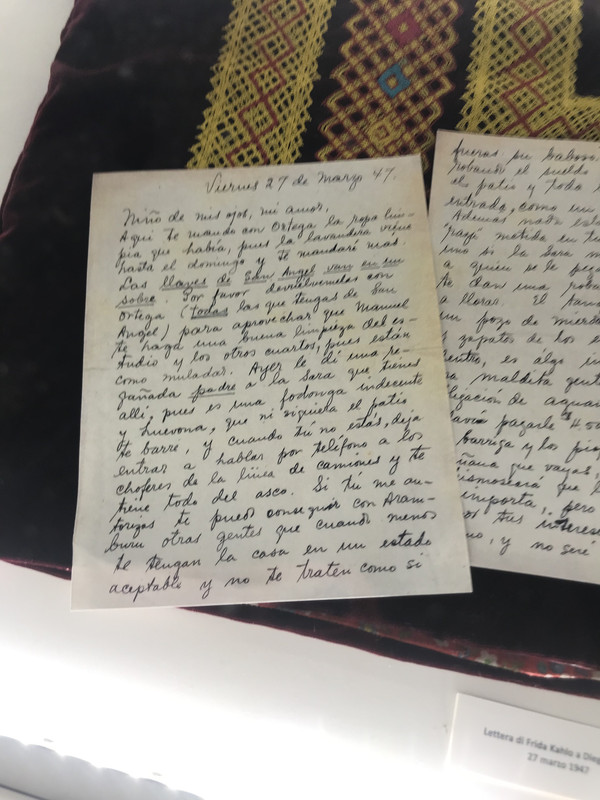 Viernes 27 de Marzo 47.
Niño de mis ojos, mi amor,
Aquí te mando con Ortega la ropa lim-
pia que había, pues la lavandera viene
hasta el domingo y te mandaré mas.
Las llaves de San Angel van en un
sobre. Por favor devuélvemelas con
Ortega (todas las que tengas de San
Angel) para aprovechar que Manuel
te haga una buena limpieza del es-
tudio y los otros cuartos, pues están
como muladar. Ayer le dí una re-
gañada padre a la Sara que tienes
allí, pues es una fodonga indecente
y huevona, que ni siquiera el patio
te barre, y cuando tú no estás, deja
entrar a hablar por teléfono a los
choferes de la linea de camiones y te
tiene todo del asco. Si tú me au-
torizas te puedo conseguir con Aram-
buru otras gentes que cuando menos
te tengan la casa en un estado
aceptable y no te traten como si
fueras su baboso
robando el sueldo
el patio y toda l
entrada, como un
Ademas nada está
metida en tu
uno si la Sara
a quien se le
te dan una
a llorar. El
un pozo de mierda
y zapatos de los
entro, es algo in
a maldita gente
lización de agua
pagarle $4.00
barriga y los
ñana que vayas,
que l
importa, pero
tus interes
no, y no seré
Lettera di Frida Kahlo a Dieg
27 marzo 1947